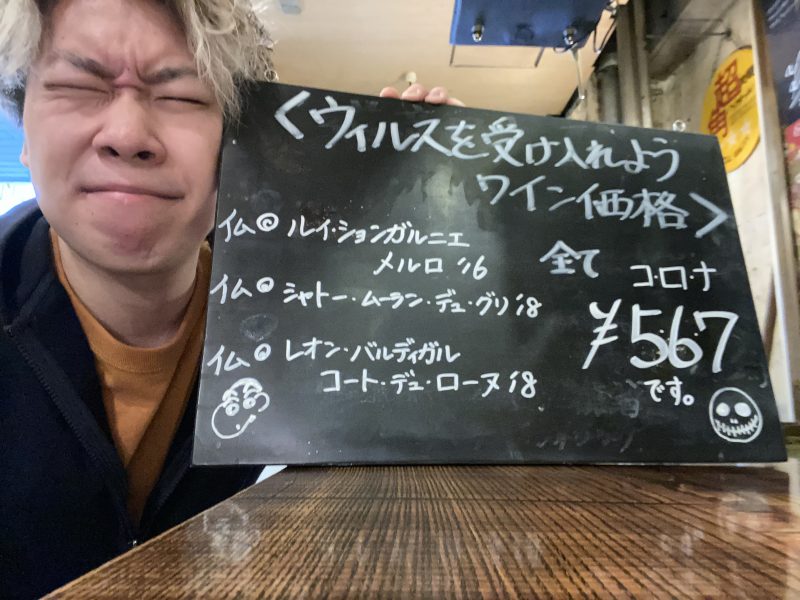 <ウィルスを受け入れよう
ワイン価格>
イム◎ ルイ・ションガルニエ
メルロ '16
イム◎ シャトー・ムーラン・デュ・グリ '18
イム◎ レオン・バルディガル
コート・デュ・ローヌ '18
全て
コ・ロ・ナ
¥5.6.7
です。
超
角